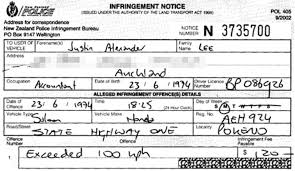 POLICE INFRINGEMENT NOTICE POL 405
(ISSUED UNDER THE AUTHORITY OF THE LAND TRANSPORT ACT 1998) 9/2002
Address for correspondence
New Zealand Police Infringement Bureau
PO Box 9147 Wellington
NOTICE NUMBER N 3735700
TO USER OF VEHICLE Forename(s) Justin Alexander Family name LEE
Auckland
Occupation Accountant Date of Birth 23/6/1974 Driver Licence Number BP086926
ALLEGED INFRINGEMENT OFFENCE(S) DETAILS
Date 23/6/1994 Time 18:25 Day
Vehicle Type Make Honda Reg. No. AEH924
Road/Street STATE HIGHWAY ONE Locality POKENO
Infringement Offence(s) Infringement Fee Payable
1 Exceeded 100 kph $ 120 —